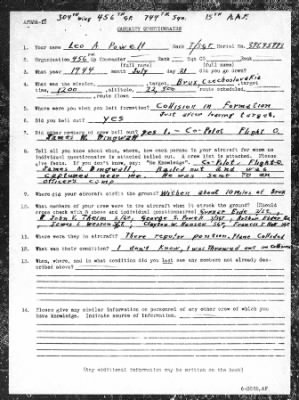 304th Wing 456th GP. 744th Sqn. 15th A.A.F.
CASUALTY QUESTIONNAIRE
1. Your name Leo A. Powell Rank T/Sgt. Serial No.
2. Organization 456 Gp Commander Rank Sqn CO Rank
(full name) (full name)
3. What year 1944 month July day 21 did you go down?
4. What was the mission, , target, Brux, Czechoslovakia, target
time, , altitude, 22,500 route scheduled,
5. Where were you when you left formation? Collision in Formation
Just after leaving target.
6. Did you bail out? yes
7. Did other members of crew bail out? yes 1. - Co-Pilot Flight O.
James N. Dingwall
8. Tell all you know about when, where, how each person in your aircraft for whom no
individual questionnaire is attached bailed out. A crew list is attached. Please
give facts. If you don't know, say: "No Knowledge". Co-Pilot Flight O
James N. Dingwall, Bailed out and was
captured near me. He was sent to an
officers camp
9. Where did your aircraft strike the ground? Within about 10 miles of Brux
10. What members of your crew were in the aircraft when it struck the ground? (Should
cross check with 8 above and individual questionnaires)
11. Where were they in aircraft? There regular position. Plane Collided
12. What was their condition? I don't know, I was thrown out on
13. When, where, and in what condition did you last see any members not already des-
cribed above?
14. Please give any similar information on personnel of any other crew of which you
have knowledge. Indicate source of information.
(Any additional information may be written on the back)